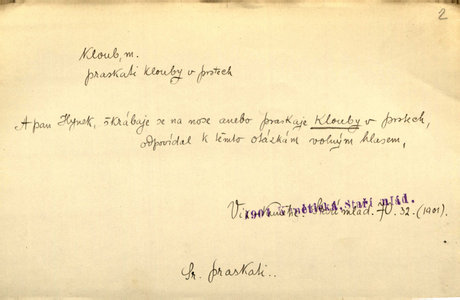 2
Kloub, m.
praskati klouby v prstech
A pan Hynek, škrábaje se na nose anebo praskaje klouby v prstech,
odpovídal k těmto otázkám volným hlasem,
mlád. 32. (1901)
1901 Staří mlád.
Sr. praskati..